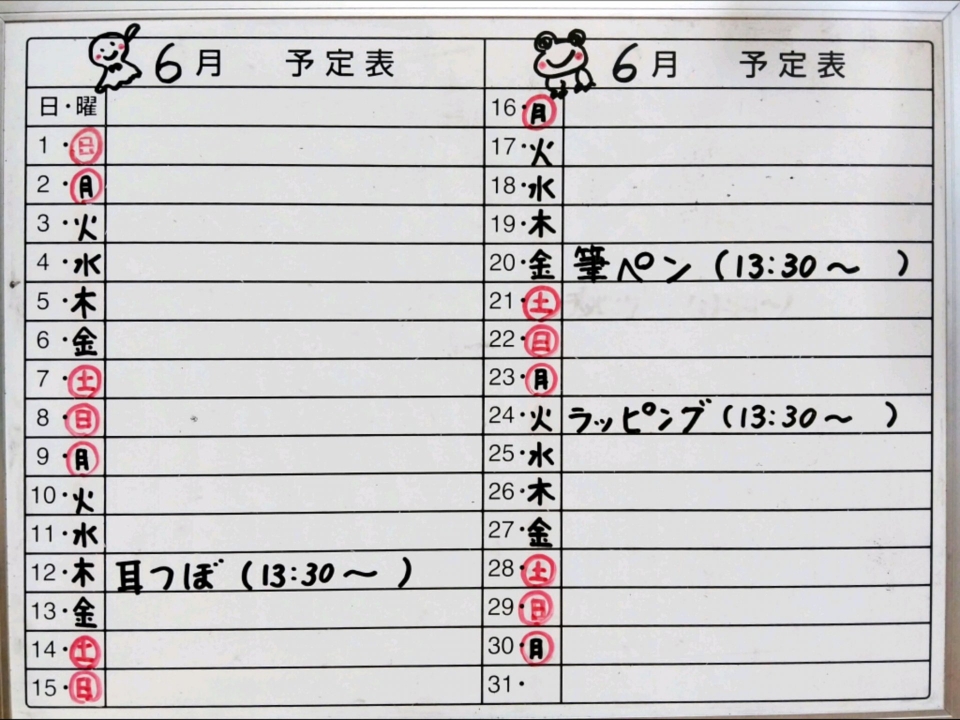 6月 予定表
日・曜
1・日
2・月
3・火
4・水
5・木
6・金
7・土
8・日
9・月
10・火
11・水
12・木 耳つぼ (13:30〜 )
13・金
14・土
15・日
6月 予定表
16・月
17・火
18・水
19・木
20・金 筆ペン (13:30〜 )
21・土
22・日
23・月
24・火 ラッピング (13:30〜 )
25・水
26・木
27・金
28・土
29・日
30・月
31・